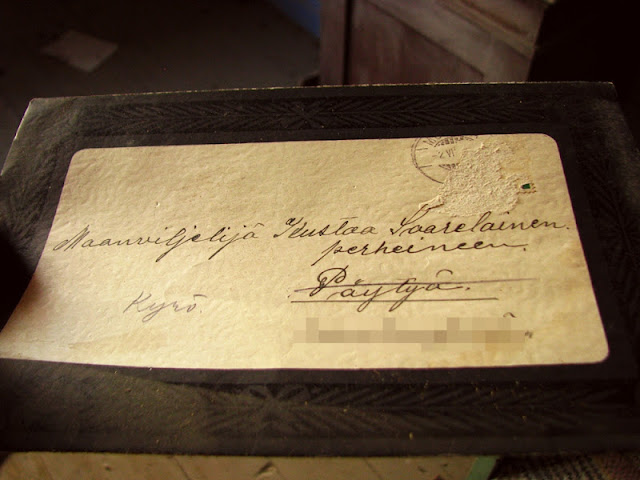 2 VI
Maanviljelijä Kustaa Saarelainen.
perheineen.
Pöytyä.
Kyrö.